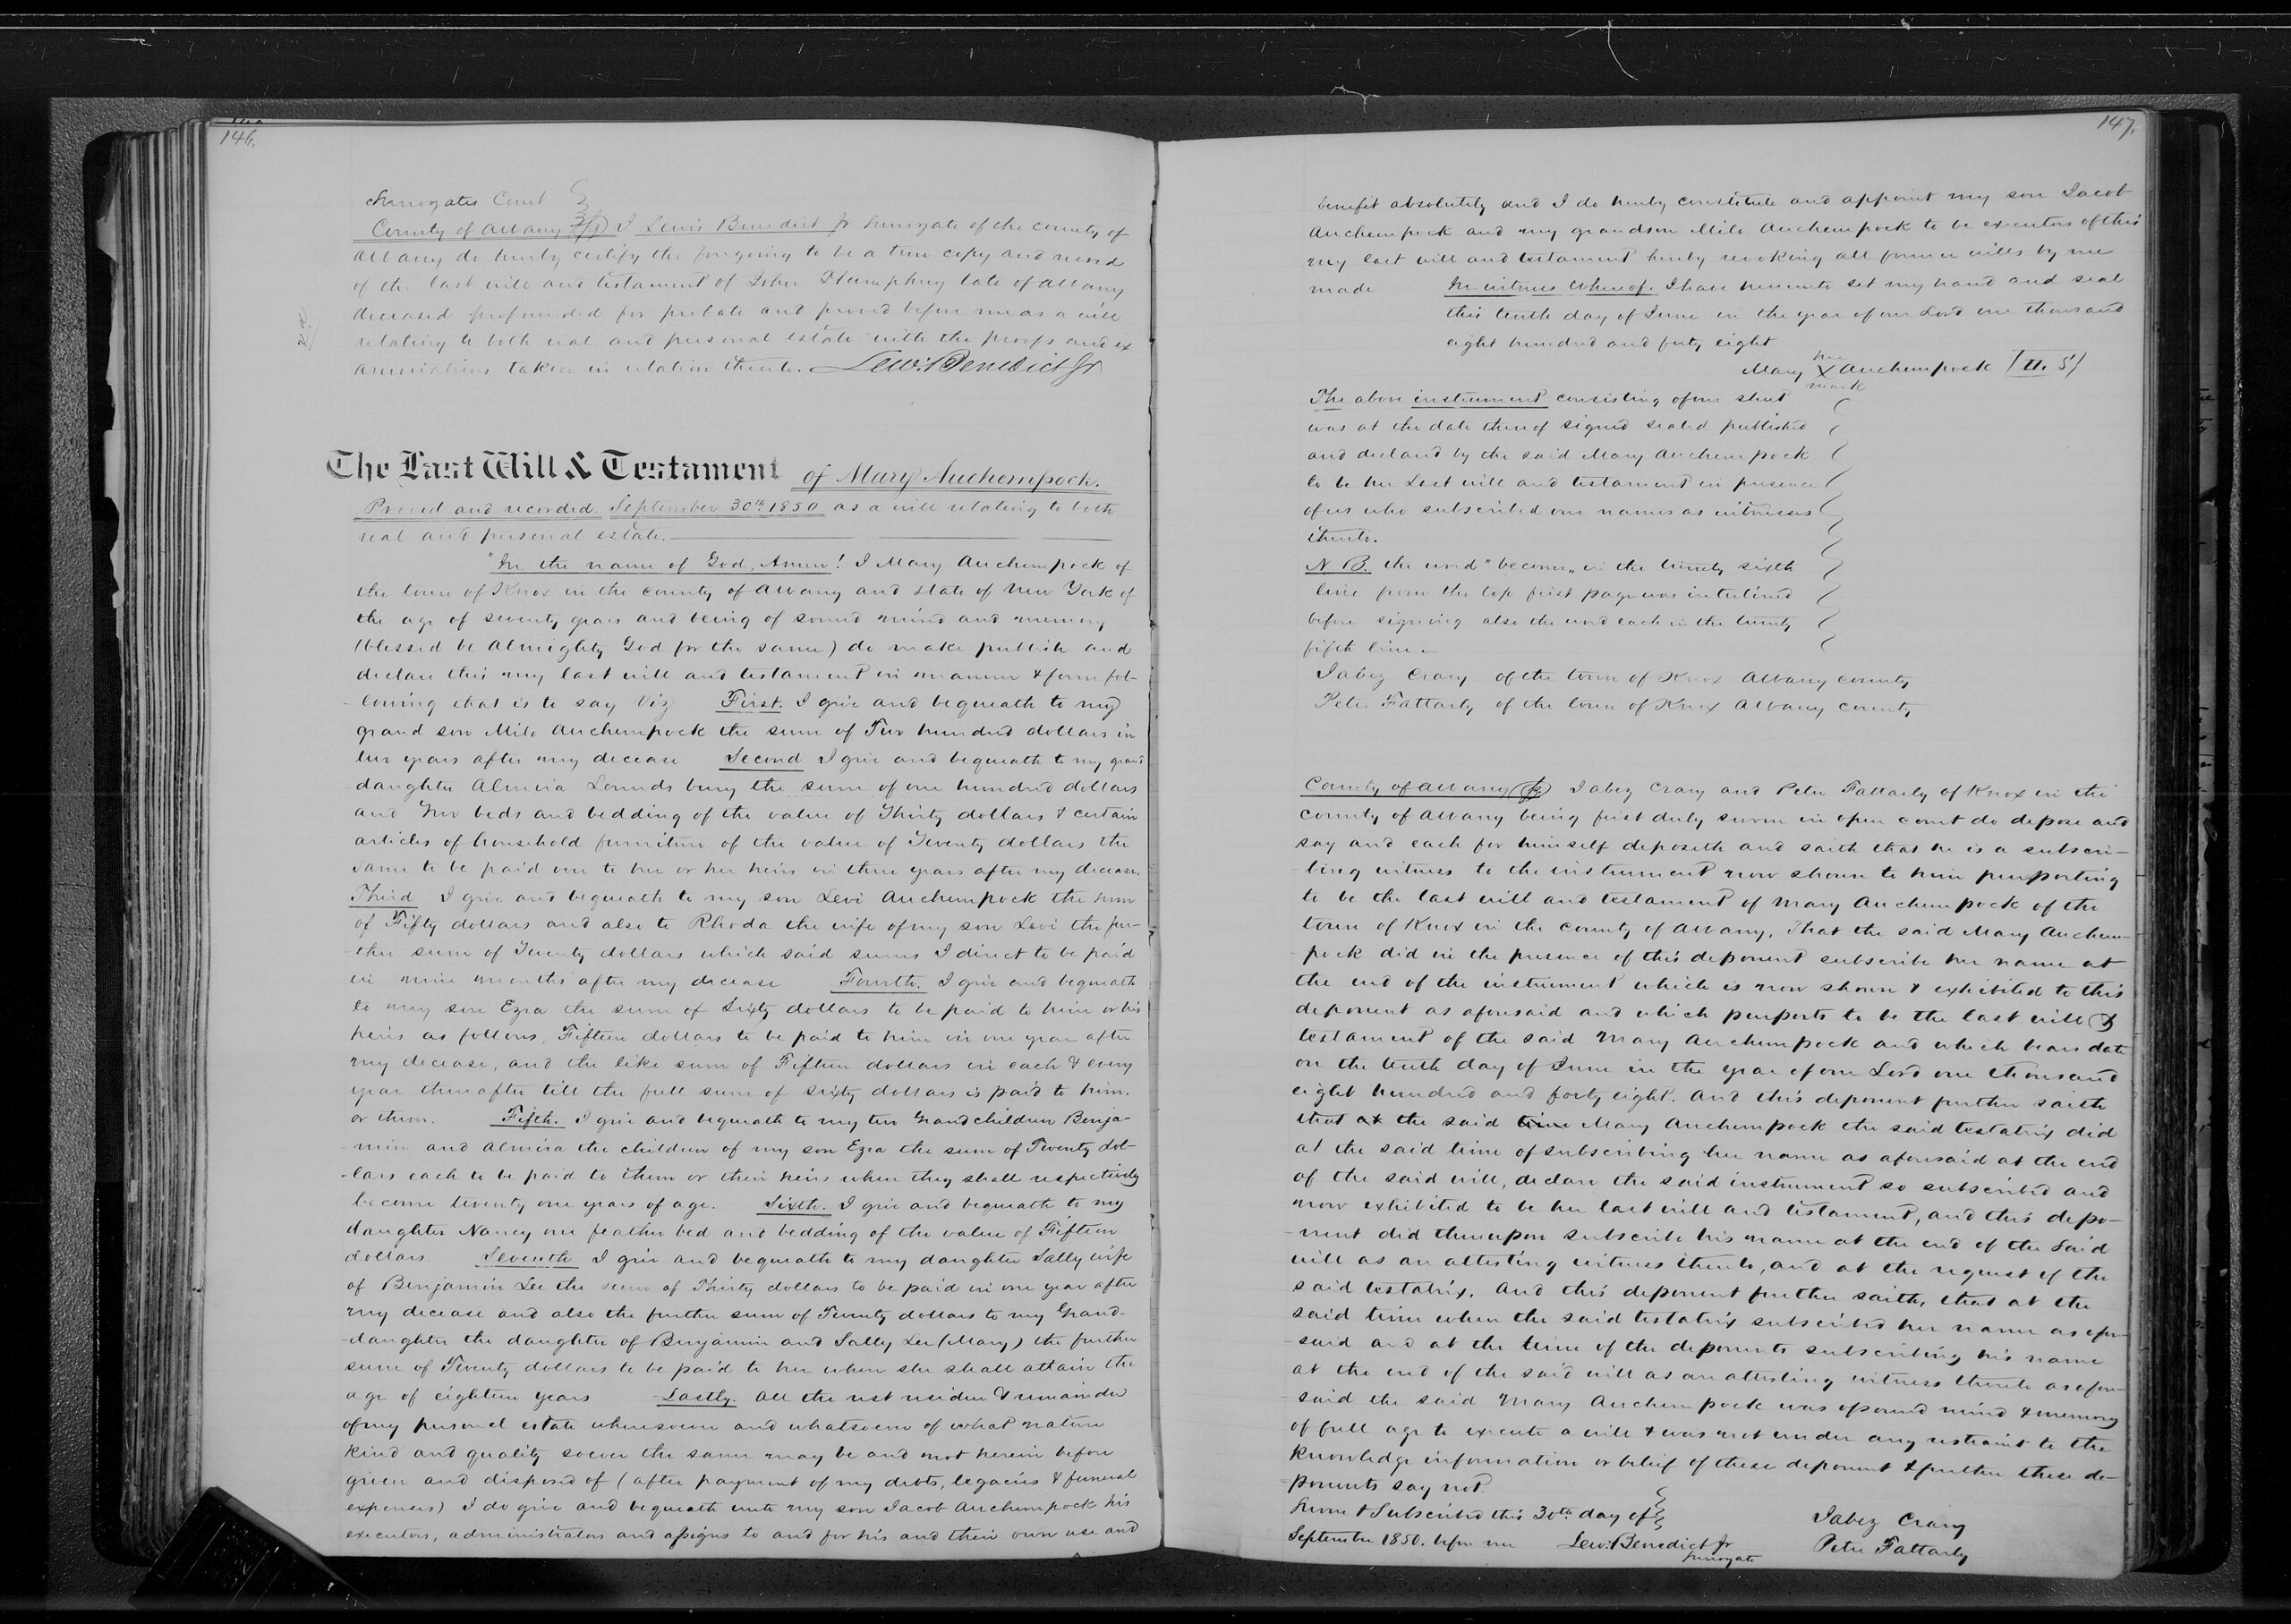 146.
Surrogates Court
County of Albany ss) I Lewis Benedict Jr Surrogate of the county of
Albany do hereby certify the foregoing to be a true copy and record
of the last will and testament of Humphrey late of Albany
deceased propounded for probate and proved before me as a will
relating to both real and personal estate with the proofs and ex
aminations taken in relation thereto. Lewis Benedict Jr
The Last Will & Testament of Mary Auchempock.
Proved and recorded September 30th 1850 as a will relating to both
real and personal estate.
"In the name of God, Amen! I Mary Auchempock of
the town of Knox in the county of Albany and state of New York of
the age of seventy years and being of sound mind and memory
(blessed be Almighty God for the same) do make publish and
declare this my last will and testament in manner & form fol-
-lowing that is to say Viz First. I give and bequeath to my
grand son Milo Auchempock the sum of Two hundred dollars in
two years after my decease Second I give and bequeath to my grand
daughter Almira Lounds bury the sum of one hundred dollars
and two beds and bedding of the value of Thirty dollars & certain
articles of household furniture of the value of Twenty dollars the
same to be paid over to her or her heirs in three years after my decease.
Third I give and bequeath to my son Levi Auchempock the sum
of Fifty dollars and also to Rhoda the wife of my son Levi the fur-
-ther sum of Twenty dollars which said sums I direct to be paid
in nine months after my decease Fourth. I give and bequeath
to my son Ezra the sum of Sixty dollars to be paid to him or his
heirs as follows, Fifteen dollars to be paid to him in one year after
my decease, and the like sum of Fifteen dollars in each & every
year thereafter till the full sum of sixty dollars is paid to him.
or them. Fifth. I give and bequeath to my two Grandchildren Benja-
-min and Almira the children of my son Ezra the sum of Twenty dol-
-lars each to be paid to them or their heirs when they shall respectively
become twenty one years of age. Sixth. I give and bequeath to my
daughter Nancy one feather bed and bedding of the value of Fifteen
dollars. Seventh I give and bequeath to my daughter Sally wife
of Benjamin Lee the sum of Thirty dollars to be paid in one year after
my decease and also the further sum of Twenty dollars to my Grand-
-daughter the daughter of Benjamin and Sally Lee (Mary) the further
sum of Twenty dollars to be paid to her when she shall attain the
age of eighteen years Lastly. All the rest residue & remainder
of my personal estate wheresoever and whatsoever of what nature
kind and quality soever the same may be and not herein before
given and disposed of (after payment of my debts, legacies & funeral
expenses) I do give and bequeath unto my son Jacob Auchempock his
executors, administrators and assigns to and for his and their own use and
147.
benefit absolutely and I do hereby constitute and appoint my son Jacob
Auchempock and my grandson Milo Auchempock to be executors of this
my last will and testament hereby revoking all former wills by me
made In witness whereof. I have hereunto set my hand and seal
this tenth day of June in the year of our Lord one thousand
eight hundred and forty eight
her
Mary X Auchempock [L. S]
mark
The above instrument consisting of one sheet
was at the date thereof signed sealed published
and declared by the said Mary Auchempock
to be her Last will and testament in presence
of us who subscribed our names as witnesses
thereto.
N B. the word "become" in the twenty sixth
line from the top first page was interlined
before signing also the word each in the twenty
fifth line.
Jabez Crary of the town of Knox Albany county
Peter Fattarly of the town of Knox Albany county
County of Albany ss) Jabez Crary and Peter Fattarly of Knox in the
county of Albany being first duly sworn in open court do depose and
say and each for himself deposeth and saith that he is a subscri-
-bing witness to the instrument now shown to him purporting
to be the last will and testament of Mary Auchempock of the
town of Knox in the county of Albany, That the said Mary Auchem-
-pock did in the presence of this deponent subscribe her name at
the end of the instrument which is now shown & exhibited to this
deponent as aforesaid and which purports to be the last will &
testament of the said Mary Auchempock and which bears date
on the tenth day of June in the year of our Lord one thousand
eight hundred and forty eight. And this deponent further saith
that at the said time Mary Auchempock the said testatrix did
at the said time of subscribing her name as aforesaid at the end
of the said will, declare the said instrument so subscribed and
now exhibited to be her last will and testament, and this depo-
-nent did thereupon subscribe his name at the end of the said
will as an attesting witness thereto, and at the request of the
said testatrix. And this deponent further saith, that at the
said time when the said testatrix subscribed her name as afore-
-said and at the time of the deponents subscribing his name
at the end of the said will as an attesting witness thereto as afore-
-said the said Mary Auchempock was of sound mind & memory
of full age to execute a will & was not under any restraint to the
knowledge information or belief of these deponent & further these de-
-ponents say not.
Sworn & Subscribed this 30th day of
September 1850. before me Lewis Benedict Jr
Surrogate
Jabez Crary
Peter Fattarly